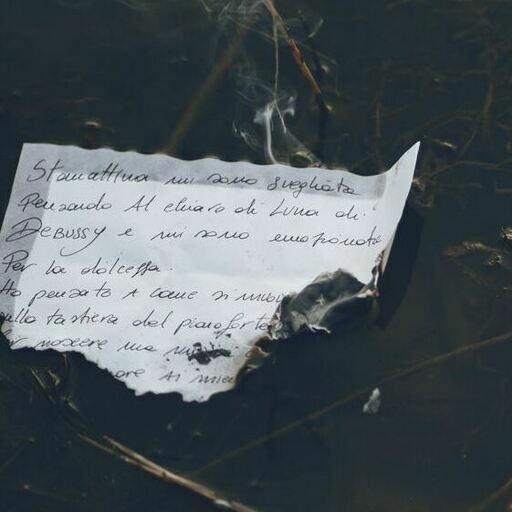 Stamattina mi sono svegliata
Pensando Al chiaro di Luna di
DEBUSSY e mi sono emozionata
Per la dolcezza.
Ho pensato A come si
sulla tastiera del pianoforte
nascere una